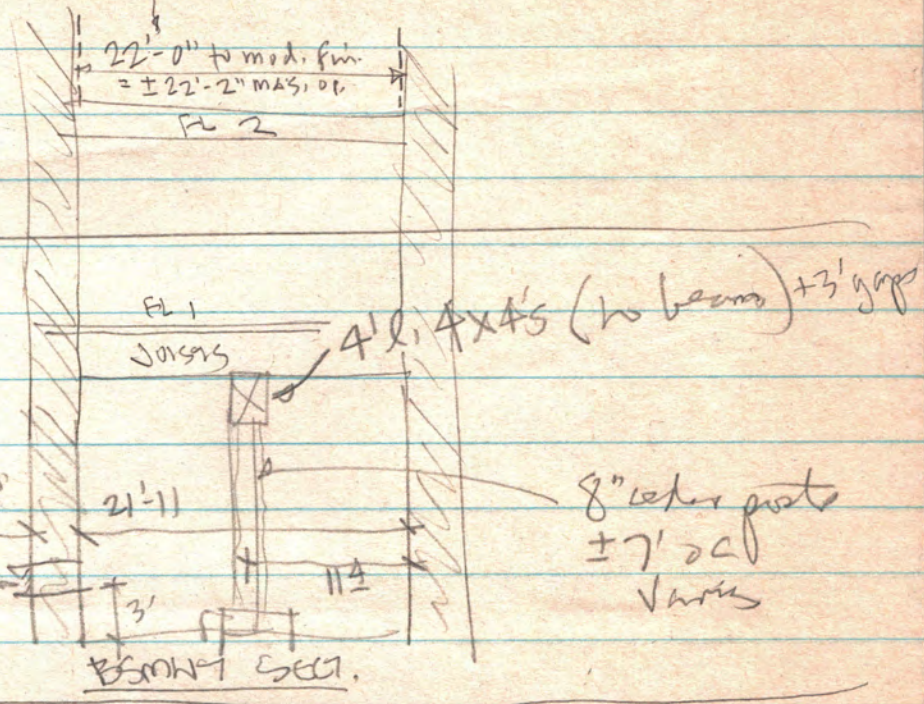 22'-0" to mod. fin.
= ± 22'-2" mas. op.
FL 2
FL 1
JOISTS
4' l. 4x4's (no beams) + 3' gaps
21'-11
11±
3'
8" cedar posts
± 7' oc
Varies
BSMNT SECT.